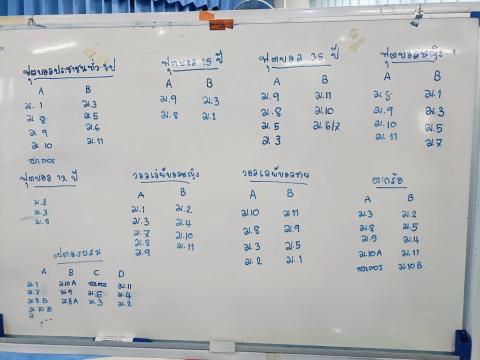 ฟุตบอลประชาชนทั่วไป
A B
ม.1 ม.3
ม 8 ม.5
ม 9 ม.6
ม 10 ม.11
ฟุตบอล 15 ปี
A B
ม.9 ม.3
ม.8 ม.1
ฟุตบอล 35 ปี
A B
ม.9 ม.11
ม.8 ม.10
ม.5 ม.6/7
ม.3
ฟุตบอลหญิง
A B
ม.8 ม.1
ม.9 ม.3
ม.10 ม.5
ม.11 ม.7
ฟุตบอล 12 ปี
ม.2
ม.3
ม.5
วอลเลย์บอลหญิง
A B
ม.1 ม.2
ม.3 ม.4
ม.7 ม.10
ม.8 ม.11
ม.9
วอลเลย์บอลชาย
A B
ม.10 ม11
ม.8 ม.9
ม.3 ม.5
ม.2 ม.1
ตะกร้อ
A B
ม.3 ม.2
ม.8 ม.5
ม.9 ม.4
ม.10A ม.11
ม.10B
เปตองผสม
A B C D
ม.1 ม.10A ม.11
ม.7 ม.9 ม.6 ม.4
ม.8B ม.8A ม.3 ม.2
ม.10B